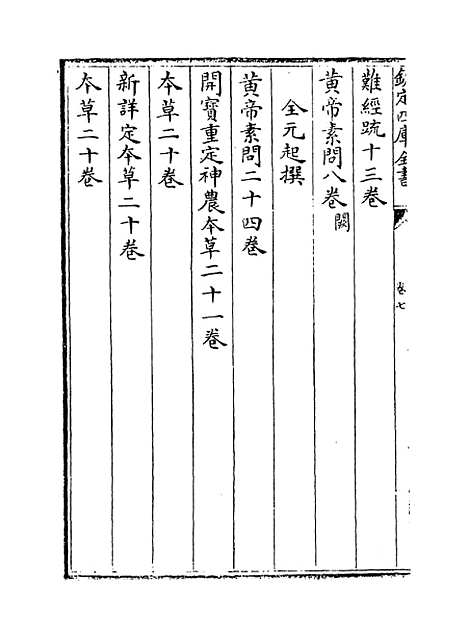 欽定四庫全書
卷七
難經疏十三卷
黄帝素問八卷闕
全元起撰
黄帝素問二十四卷
開寶重定神農本草二十一卷
本草二十卷
新詳定本草二十卷
本草二十卷